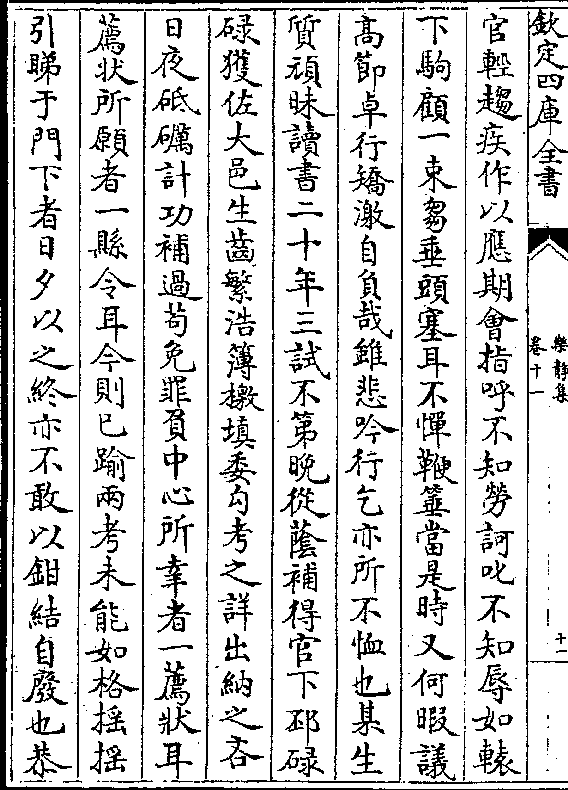 欽定四庫全書
樂靜集
卷十一
十一
官輕趨疾作以應期會指呼不知勞訶叱不知辱如轅
下駒顧一束芻垂頭塞耳不憚鞭箠當是時又何暇議
髙節卓行矯激自負哉雖悲吟行乞亦所不恤也某生
質頑昧讀書二十年三試不第晚從蔭補得官下邳碌
碌獲佐大邑生齒繁浩簿檄填委勾考之詳出納之吝
日夜砥礪計功補過苟免罪負中心所幸者一薦狀耳
薦狀所願者一縣令耳今則已踰兩考未能如格揺揺
引睇于門下者日夕以之終亦不敢以鉗結自廢也恭